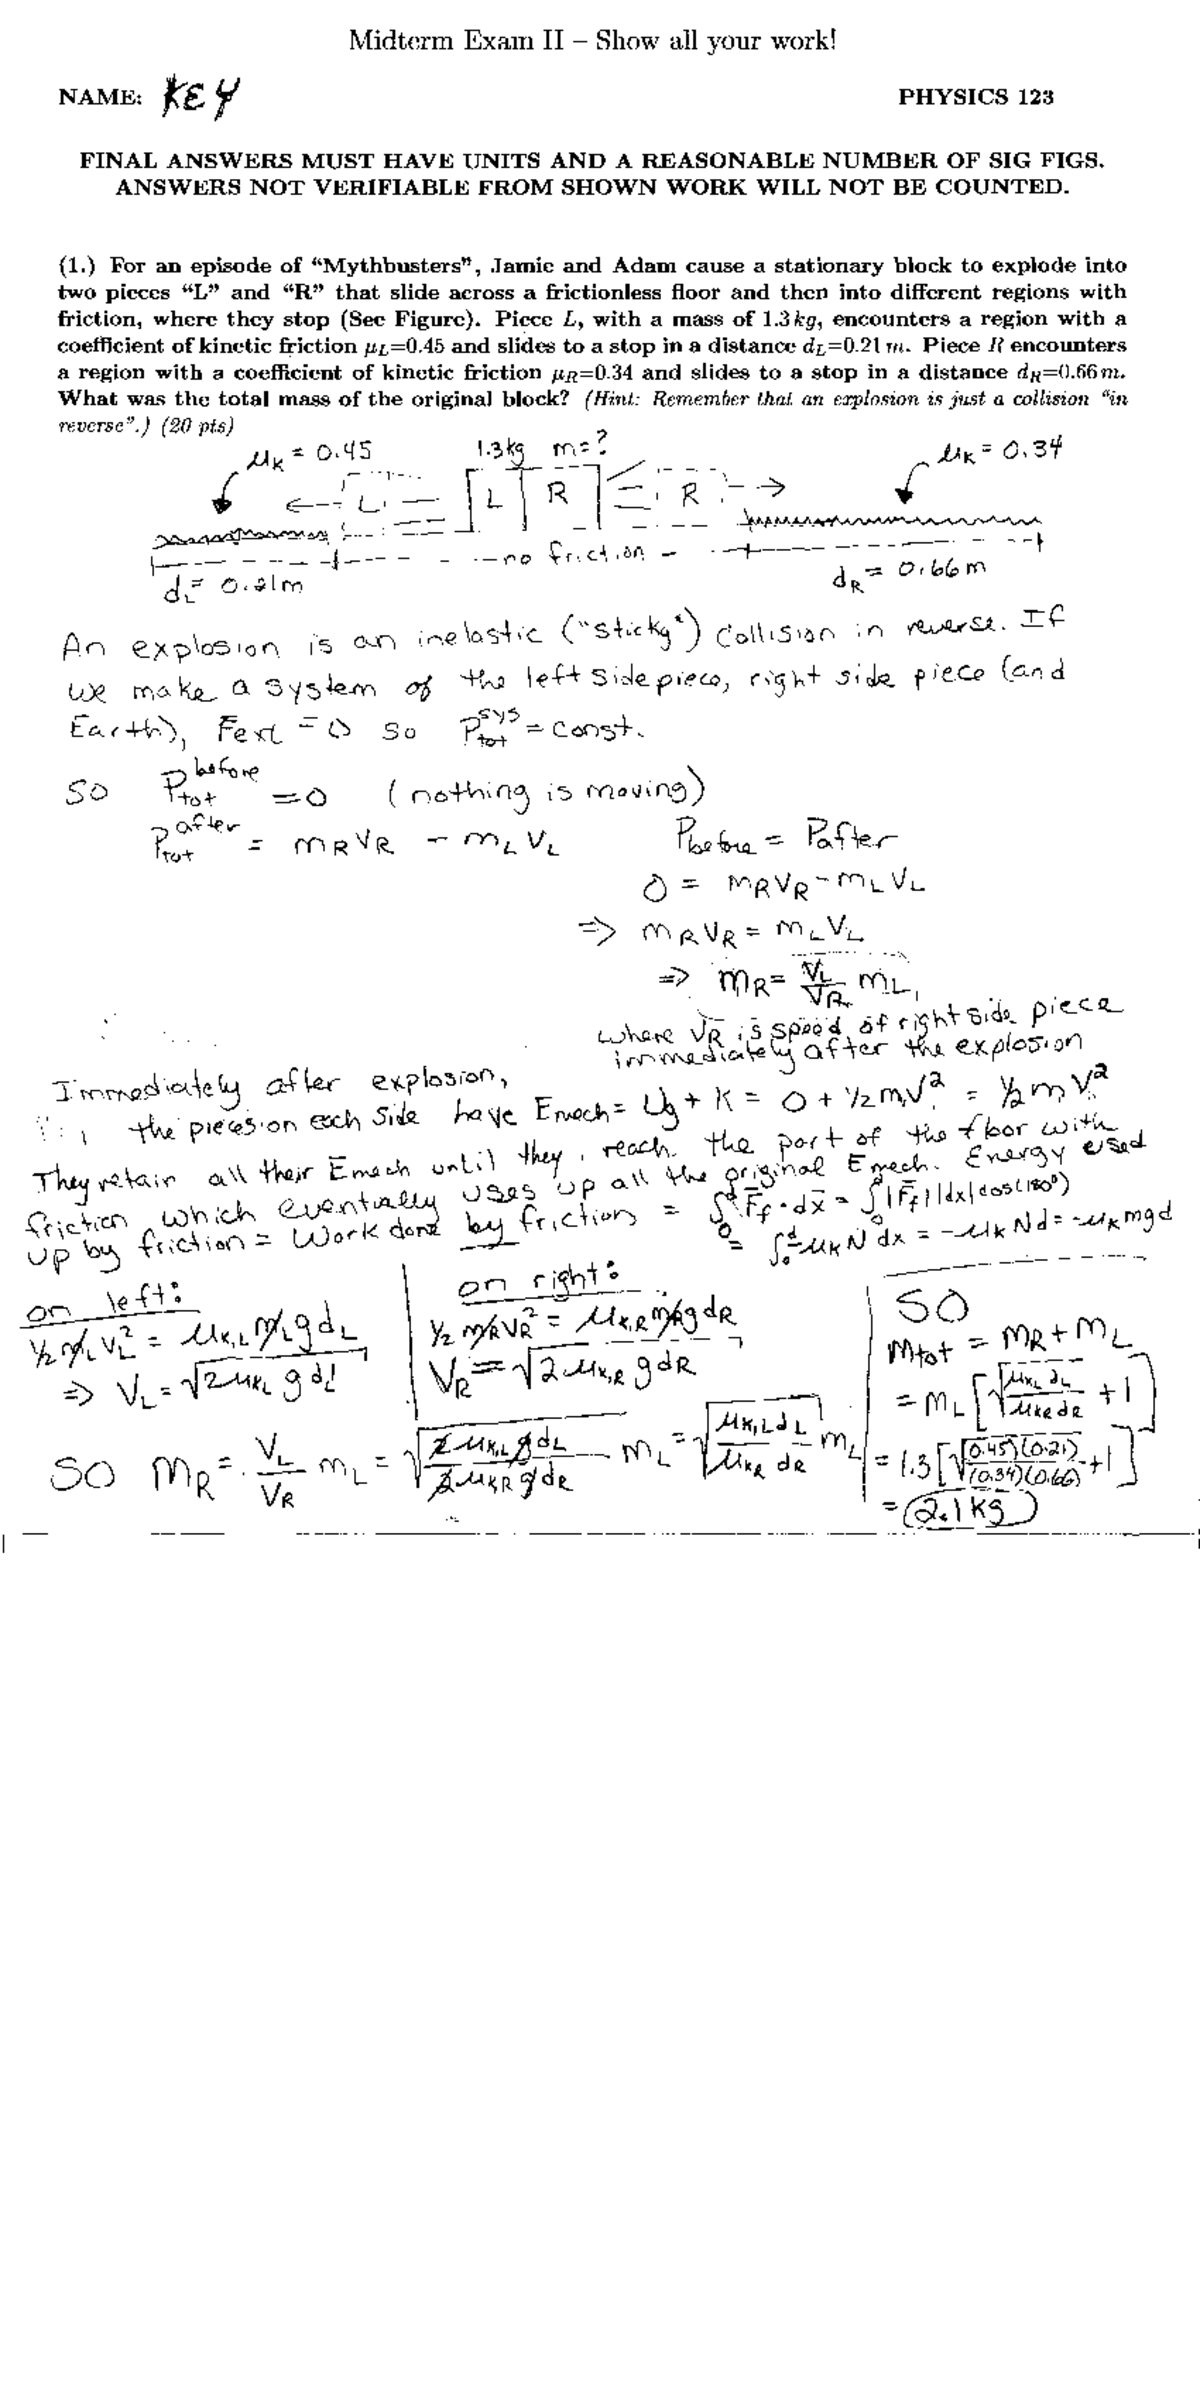 Midterm Exam II – Show all your work!
NAME: KEY PHYSICS 123
FINAL ANSWERS MUST HAVE UNITS AND A REASONABLE NUMBER OF SIG FIGS.
ANSWERS NOT VERIFIABLE FROM SHOWN WORK WILL NOT BE COUNTED.
(1.) For an episode of “Mythbusters”, Jamie and Adam cause a stationary block to explode into
two pieces “L” and “R” that slide across a frictionless floor and then into different regions with
friction, where they stop (See Figure). Piece L, with a mass of 1.3kg, encounters a region with a
coefficient of kinetic friction μL=0.45 and slides to a stop in a distance dL=0.21m. Piece R encounters
a region with a coefficient of kinetic friction μR=0.34 and slides to a stop in a distance dR=0.66m.
What was the total mass of the original block? (Hint: Remember that an explosion is just a collision “in
reverse”.) (20 pts)
μK = 0.45 1.3kg m=? μK = 0.34
L L R R
no friction
dL = 0.21m dR = 0.66m
An explosion is an inelastic ("sticky") collision in reverse. If
we make a system of the left side piece, right side piece (and
Earth), Fext = 0 so Ptot^sys = const.
SO Ptot^before = 0 (nothing is moving)
Ptot^after = mRVR - mLVL Pbefore = Pafter
0 = mRVR - mLVL
=> mRVR = mLVL
=> mR = VL/VR mL,
where VR is speed of right side piece
immediately after the explosion
Immediately after explosion,
the pieces on each side have Emech = Ug + K = 0 + ½mV² = ½mV²
They retain all their Emech until they reach the part of the floor with
friction which eventually uses up all the original Emech. Energy used
up by friction = Work done by friction = ∫₀^d Ff·dx = ∫₀ |Ff||dx|cos(180°)
= ∫₀^d -μK N dx = -μK Nd = -μK mgd
on left: on right: SO
½ mL VL² = μK,L mL g dL ½ mR VR² = μK,R mR g dR mtot = mR + mL
=> VL = √(2μK,L g dL) VR = √(2μK,R g dR) = mL [√(μK,L dL / μK,R dR) + 1]
SO mR = VL/VR mL = √(2μK,L g dL / 2μK,R g dR) mL = √(μK,L dL / μK,R dR) mL = 1.3[√((0.45)(0.21)/(0.34)(0.66)) + 1]
= 2.1kg